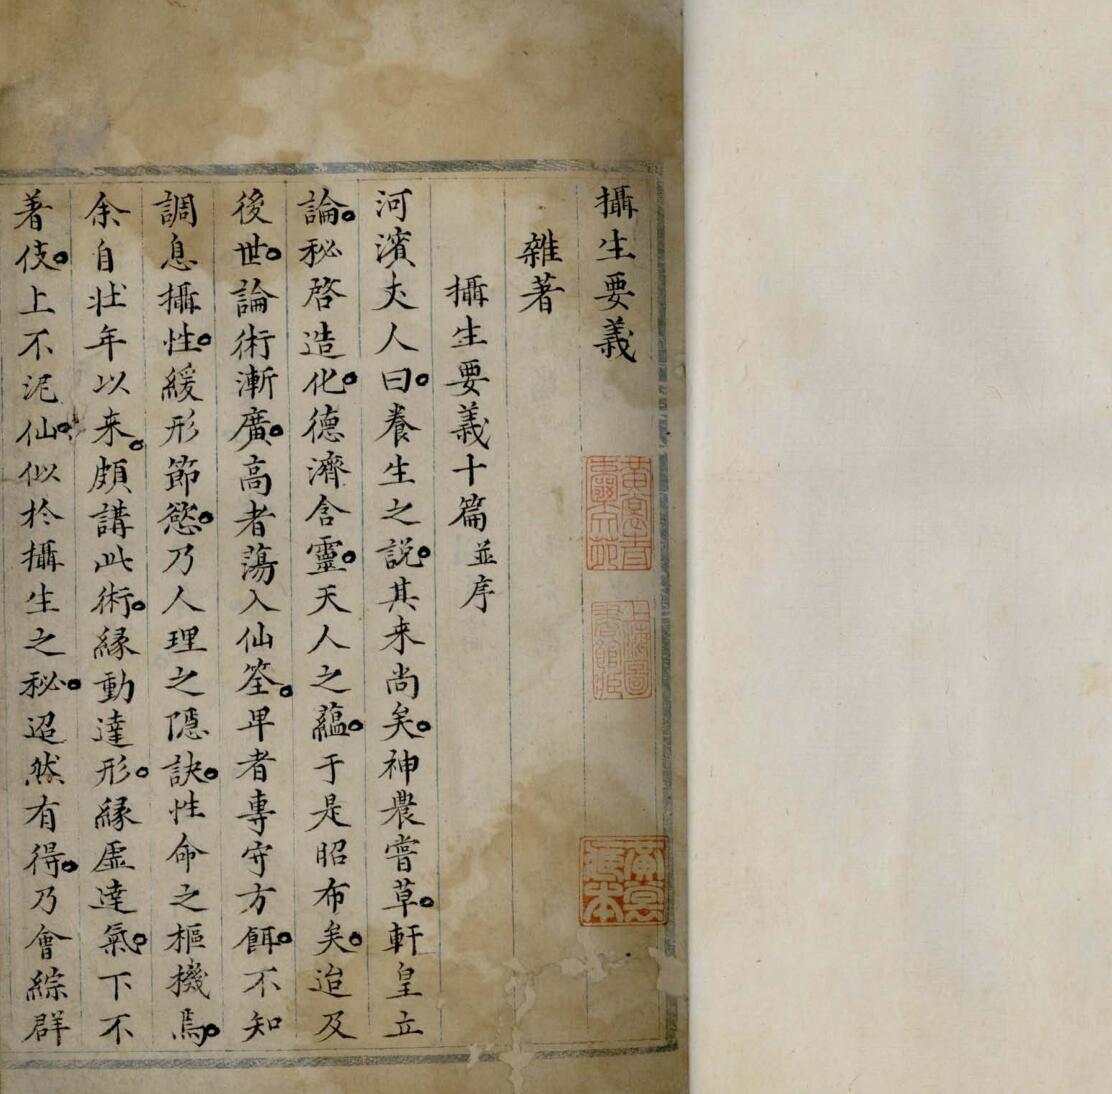 攝生要義
雜著
攝生要義十篇並序
河濱丈人曰養生之說其来尚矣神農嘗草軒皇立
論秘啓造化德濟含靈天人之蘊于是昭布矣迨及
後世論術漸廣高者蕩入仙筌卑者專守方餌不知
調息攝性緩形節慾乃人理之隱訣性命之樞機焉
余自壯年以来頗講此術緣動達形緣虛達氣下不
著伎上不泥仙似於攝生之秘迢然有得乃會綜群
黃裳青
囊文苑
上海圖
書館藏